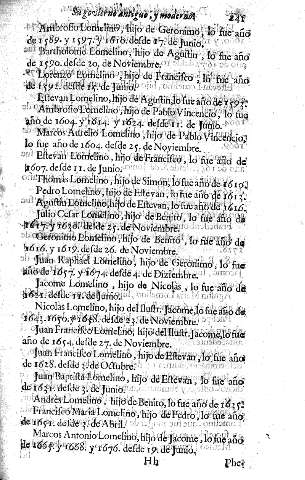 Su govierno antiguo, y moderno. 241
Ambrosio Lomelino, hijo de Geronimo, lo fue año
de 1589. y 1597. y 1610. desde 17. de Junio.
Bartholome Lomelino, hijo de Agustin, lo fue año
de 1590. desde 20. de Noviembre.
Lorenzo Lomelino, hijo de Francisco, lo fue año
de 1592. desde 15. de Junio.
Estevan Lomelino, hijo de Agustin, lo fue año de 1593.
Ambrosio Lomelino, hijo de Pablo Vincencio, lo fue
año de 1604. y 1614. y 1624. desde 11. de Junio.
Marcos Aurelio Lomelino, hijo de Pablo Vincencio,
lo fue año de 1604. desde 25. de Noviembre.
Estevan Lomelino, hijo de Francisco, lo fue año de
1607. desde 11. de Junio.
Thomàs Lomelino, hijo de Simon, lo fue año de 1610.
Pedro Lomelino, hijo de Estevan, lo fue año de 1613.
Agustin Lomelino, hijo de Estevan, lo fue año de 1616.
Julio Cesar Lomelino, hijo de Benito, lo fue año de
1617. y 1628. desde 25. de Noviembre.
Geronimo Lomelino, hijo de Benito, lo fue año de
1616. y 1619. desde 26. de Noviembre.
Juan Raphael Lomelino, hijo de Geronimo, lo fue
año de 1657. y 1674. desde 4. de Diziembre.
Jacome Lomelino, hijo de Nicolàs, lo fue año de
1621. desde 11. de Junio.
Nicolàs Lomelino, hijo del Ilustr. Jacome, lo fue año de
1643. 1650. y 1658. desde 23. de Noviembre.
Juan Francisco Lomelino, hijo del Ilustr. Jacome, lo fue
año de 1654. desde 27. de Noviembre.
Juan Francisco Lomelino, hijo de Estevan, lo fue año
de 1628. desde de Octubre.
Juan Baptista Lomelino, hijo de Estevan, lo fue año
de 1631. desde 2. de Junio.
Andrès Lomelino, hijo de Benito, lo fue año de 1615.
Francisco Maria Lomelino, hijo de Pedro, lo fue año
de 1651. desde 3. de Abril.
Marcos Antonio Lomelino, hijo de Jacome, lo fue año
de 1665. y 1668. y 1676. desde 19. de Junio.
Hh Phe-